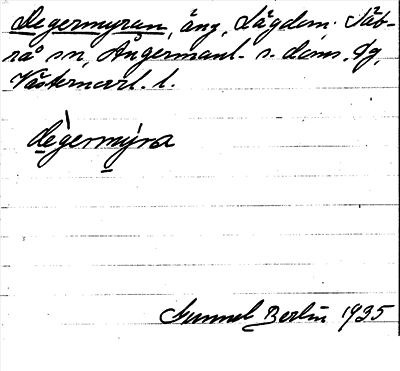 Degermyran, äng, Lägdom. Säb-
rå sn, Ångermanl. s. doms. dg,
Västernorrl. l.
dègermýra
Gunnel Berlin 1935